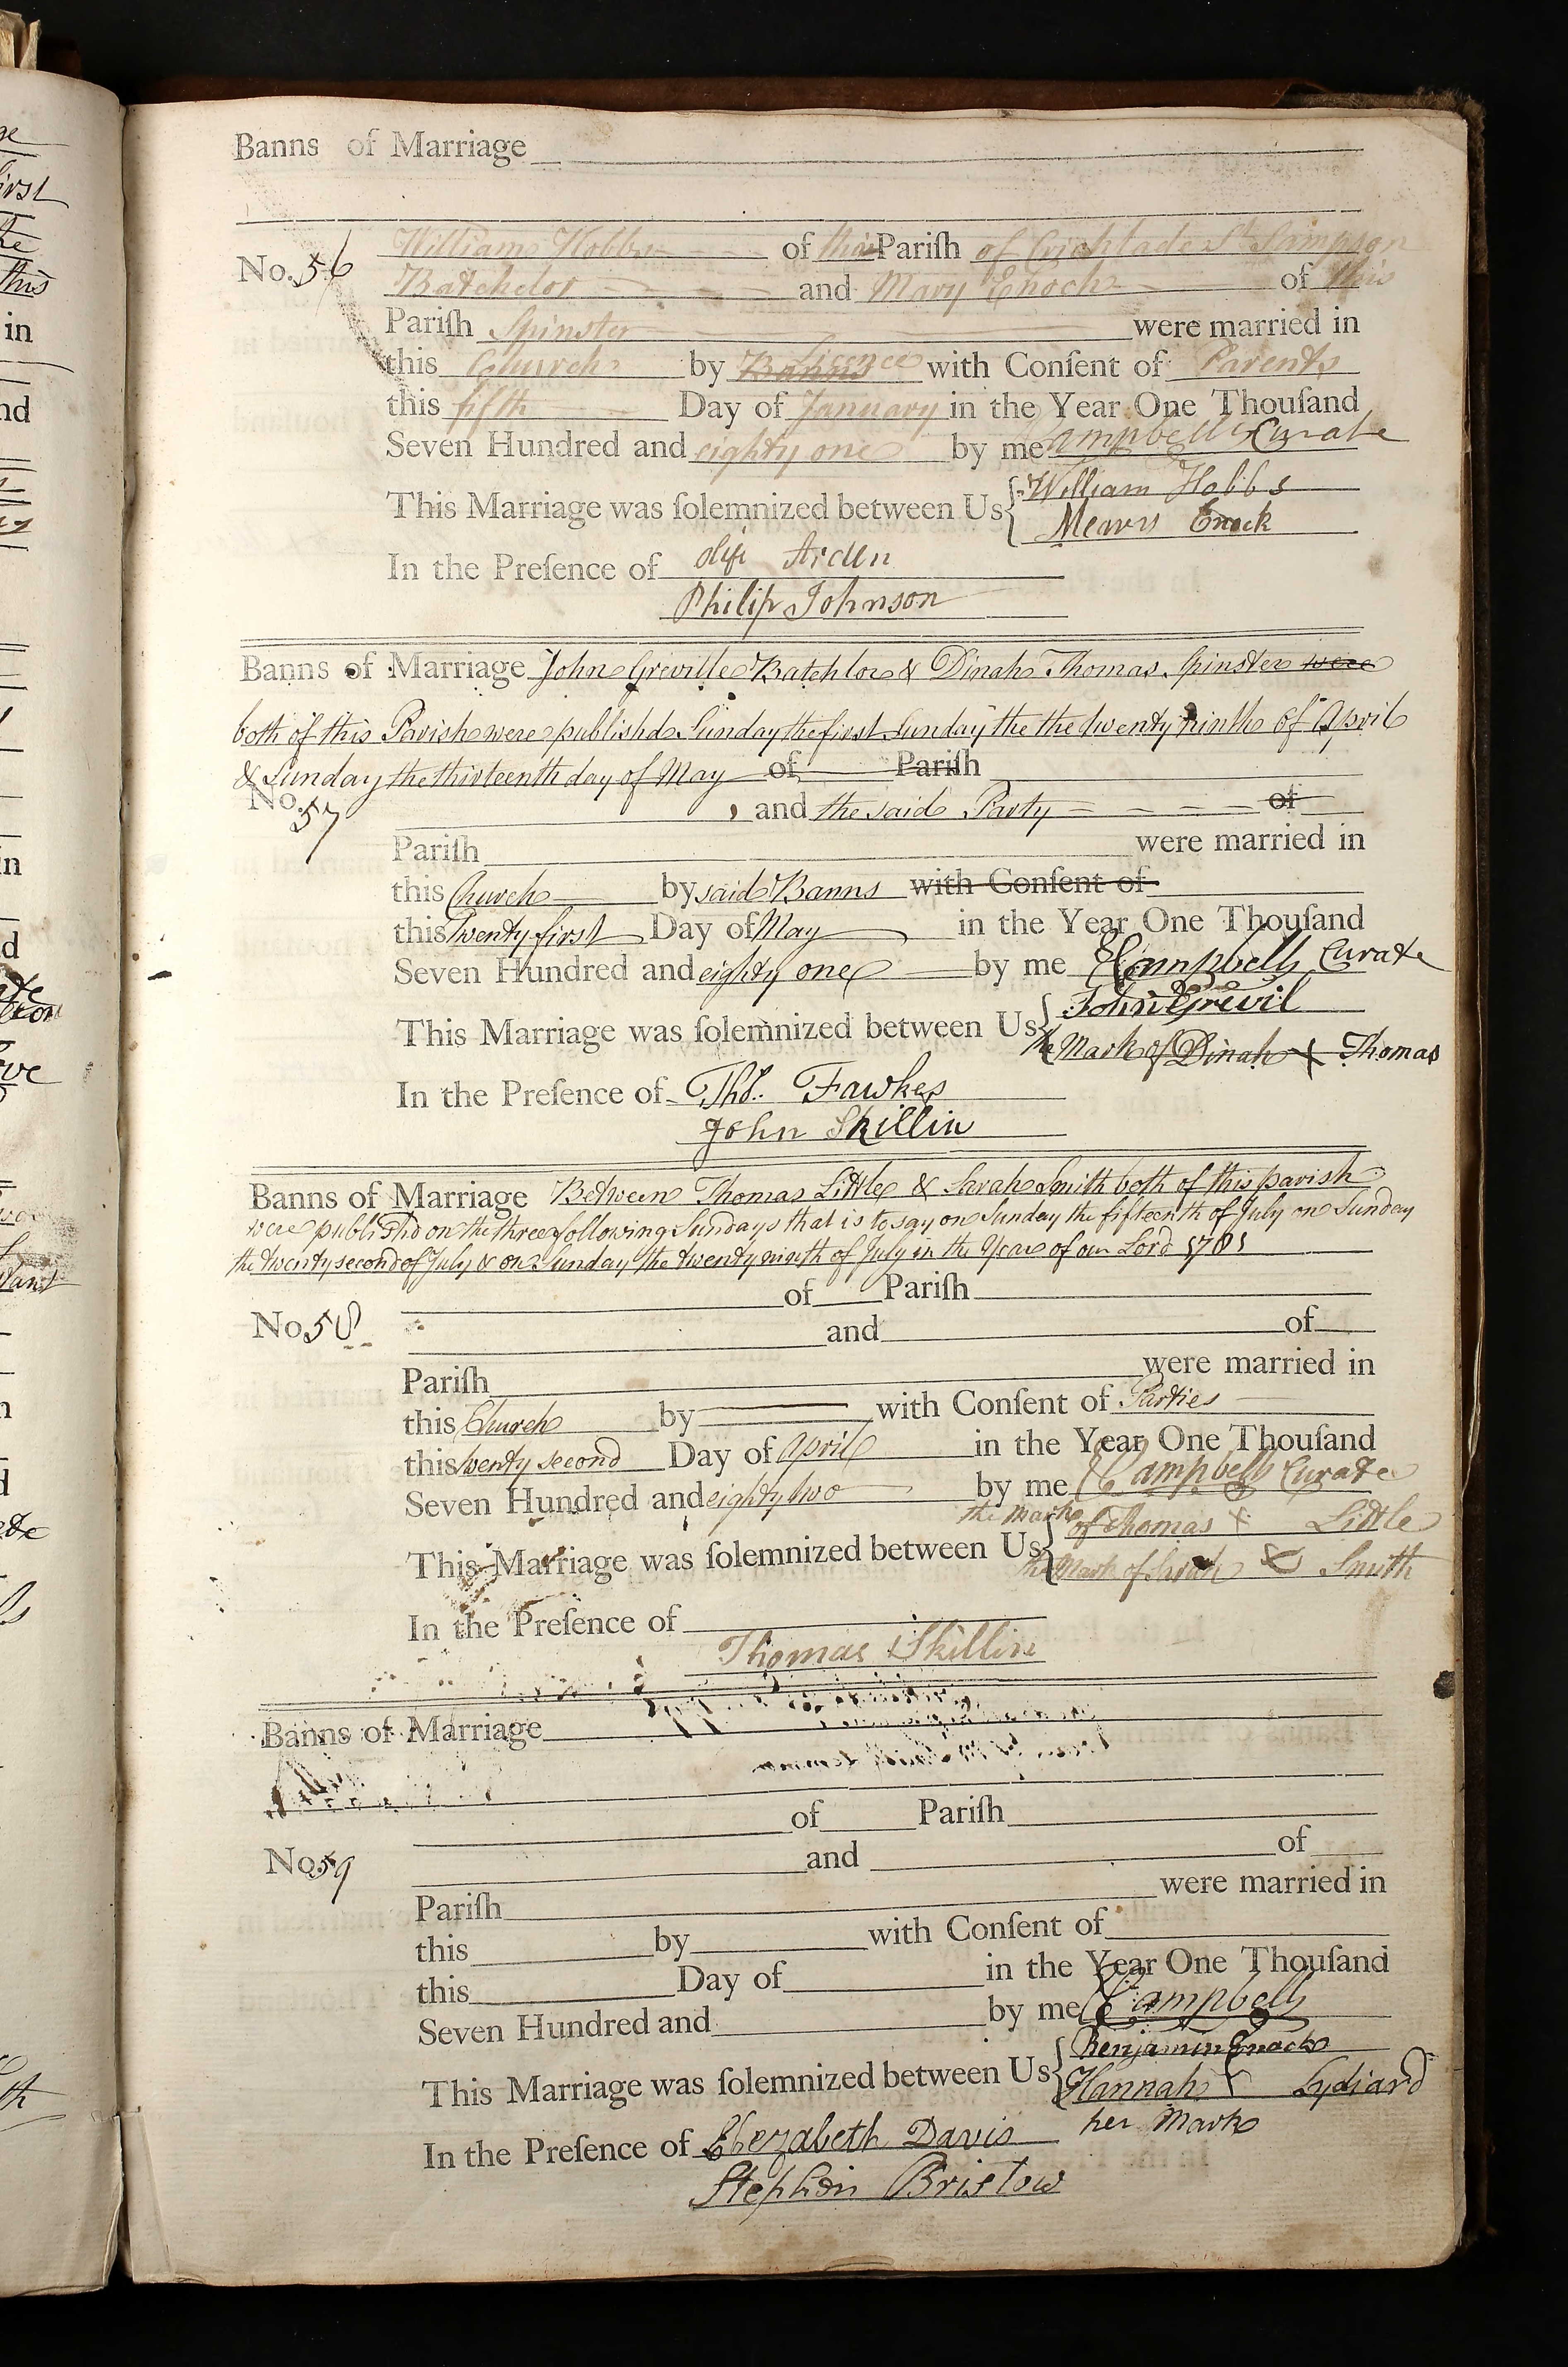 Banns of Marriage
No. 56 William Hobbs of this Pariſh of Cricklade St. Sampson
Batchelor and Mary Enoch of this
Pariſh Spinster were married in
this Church by Banns Licence with Conſent of Parents
this fifth Day of January in the Year One Thouſand
Seven Hundred and eighty one by me Campbell Curate
This Marriage was ſolemnized between Us William Hobbs
Enock
In the Preſence of Arden
Philip Johnson
Banns of Marriage John Greville Batchlor & Dinah Thomas Spinster were
both of this Parish were publishd Sunday the first Sunday the the twenty ninth of April
& Sunday the thirteenth day of May of Pariſh
No. 57 and the said Party of
Pariſh were married in
this Church by said Banns with Conſent of
this Twenty first Day of May in the Year One Thouſand
Seven Hundred and eighty one by me Campbell Curate
This Marriage was ſolemnized between Us John Grevil
the Mark of Dinah X Thomas
In the Preſence of Thos. Fawkes
John Skillin
Banns of Marriage Between Thomas Little & Sarah Smith both of this parish
were publishd on the three following Sundays that is to say on Sunday the fifteenth of July on Sunday
the twenty second of July & on Sunday the twenty nineth of July in the Year of our Lord 1781
of Pariſh
No. 58 and of
Pariſh were married in
this Church by with Conſent of Parties
this twenty second Day of April in the Year One Thouſand
Seven Hundred and eighty two by me Campbell Curate
the Mark of Thomas X Little
This Marriage was ſolemnized between Us
the Mark of Sarah Smith
In the Preſence of
Thomas Skillin
Banns of Marriage
of Pariſh
No. 59 and of
Pariſh were married in
this by with Conſent of
this Day of in the Year One Thouſand
Seven Hundred and by me Campbell
Benjamin Enock
This Marriage was ſolemnized between Us Hannah X Lydiard
her Mark
In the Preſence of Elezabeth Davis
Stephen Bristow